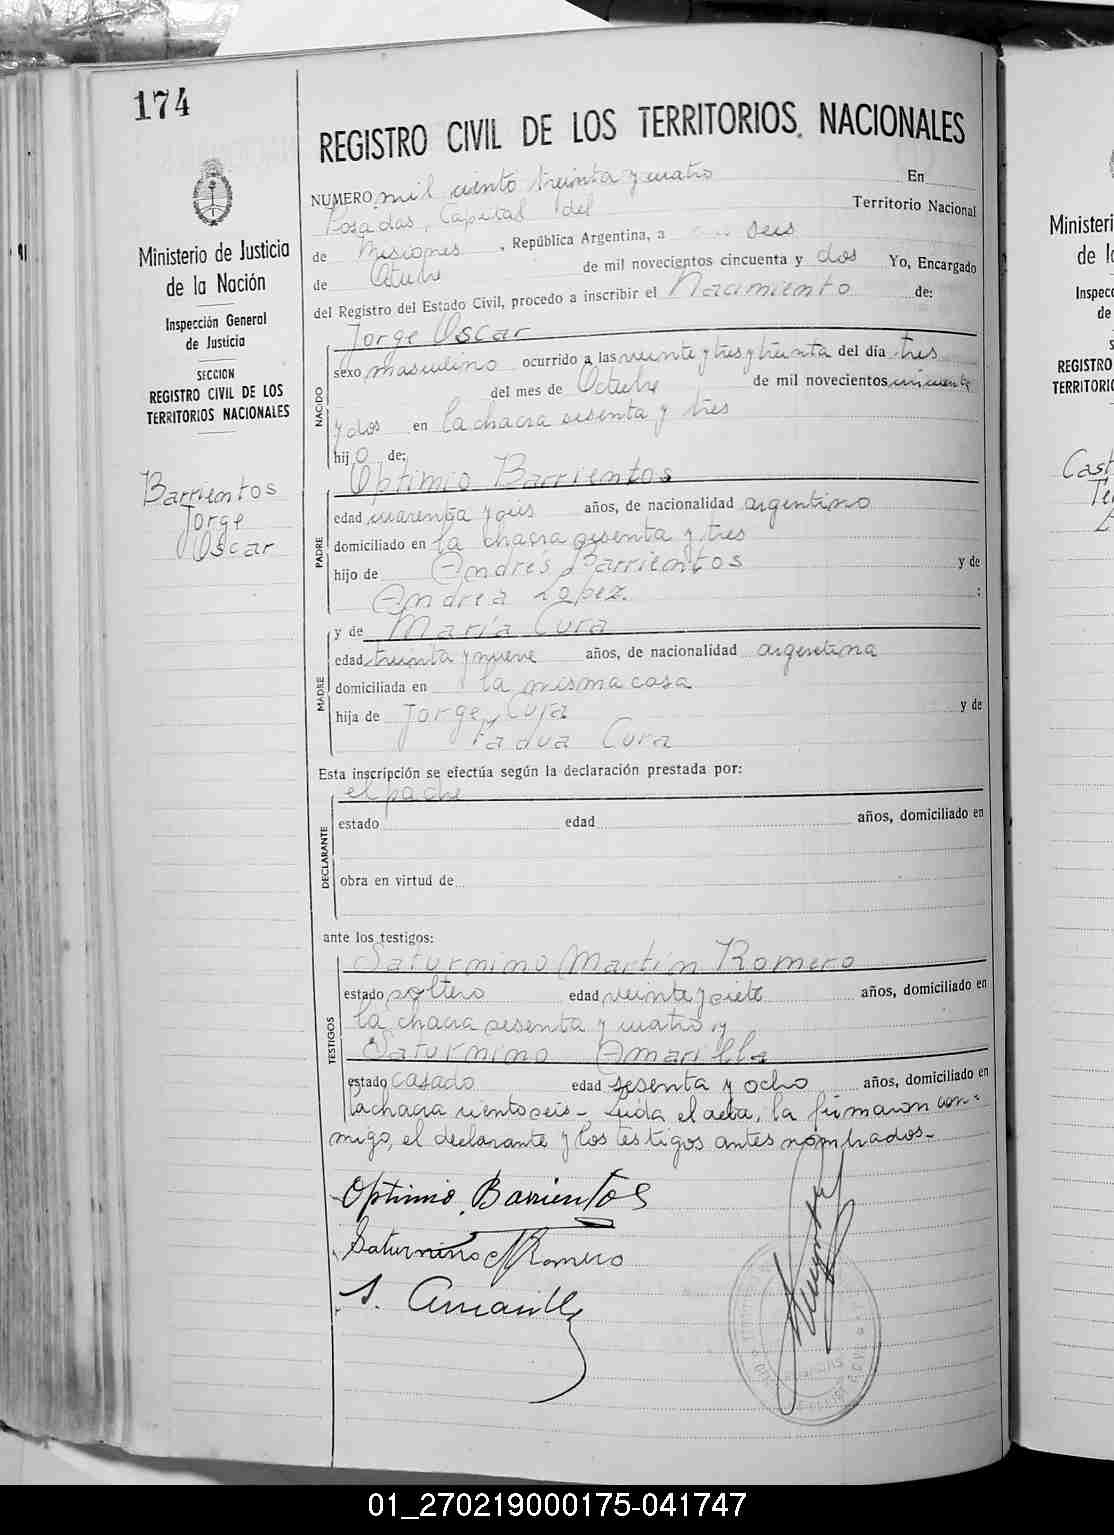 174
REGISTRO CIVIL DE LOS TERRITORIOS NACIONALES
Ministerio de Justicia
de la Nación
Inspección General
de Justicia
SECCION
REGISTRO CIVIL DE LOS
TERRITORIOS NACIONALES
Barrientos
Jorge
Oscar
NUMERO mil ciento treinta y cuatro En
Posadas, Capital del Territorio Nacional
de Misiones, República Argentina, a seis
de Octubre de mil novecientos cincuenta y dos Yo, Encargado
del Registro del Estado Civil, procedo a inscribir el Nacimiento de:
Jorge Oscar
NACIDO
sexo masculino ocurrido a las veinte y tres y treinta del día tres
del mes de Octubre de mil novecientos cincuenta
y dos en la chacra sesenta y tres
hijo de:
Optimio Barrientos
PADRE
edad cuarenta y seis años, de nacionalidad argentino
domiciliado en la chacra sesenta y tres
hijo de Andrés Barrientos y de
Andrea Lopez. :
y de María Cura
MADRE
edad treinta y nueve años, de nacionalidad argentina
domiciliada en la misma casa
hija de Jorge Cura y de
Padua Cura
Esta inscripción se efectúa según la declaración prestada por:
el padre
DECLARANTE
estado edad años, domiciliado en
obra en virtud de
ante los testigos:
Saturnino Martín Romero
TESTIGOS
estado soltero edad veinte y siete años, domiciliado en
la chacra sesenta y cuatro y
Saturnino Amarilla
estado casado edad sesenta y ocho años, domiciliado en
la chacra ciento seis - Leída el acta, la firmaron con=
migo, el declarante y los testigos antes nombrados.-
Optimio Barrientos
Saturnino M Romero
S. Amarilla
Ministeri
de la
Inspec
de
S
REGISTRO
TERRITORIO
Cast
01_270219000175-041747